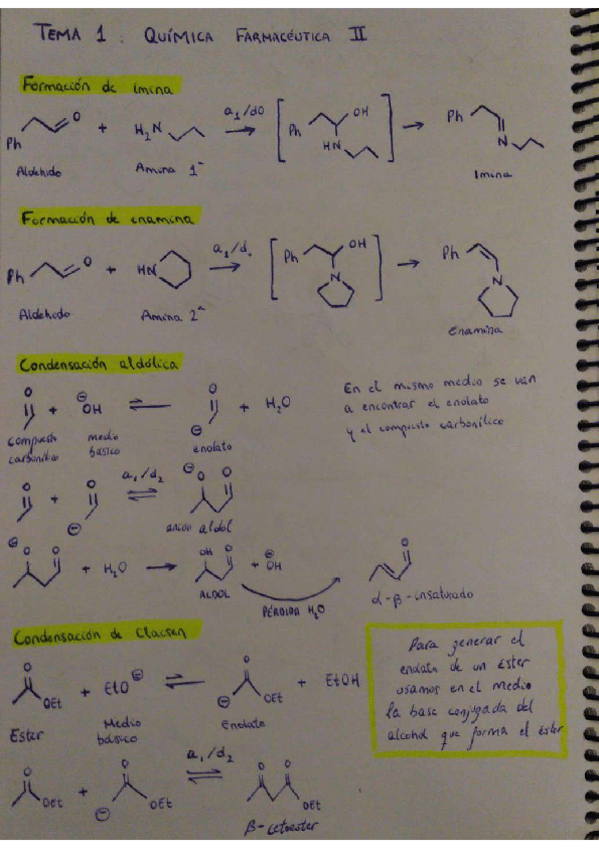 TEMA 1 : QUÍMICA FARMACÉUTICA II
Formación de imina
Ph O + H₂N a₁/d0 [ Ph OH HN ] → Ph N
Aldehido Amina 1ª Imina
Formación de enamina
Ph O + HN a₁/d₀ [ Ph OH N ] → Ph N
Aldehido Amina 2ª Enamina
Condensación aldólica
En el mismo medio se van
a encontrar el enolato
y el compuesto carbonílico
O + ⊖OH ⇌ O ⊖ + H₂O
compuesto carbonílico medio básico enolato
O + O ⊖ a₁/d₂ ⇌ ⊖O O
anión aldol
⊖O O + H₂O → OH O + ⊖OH
ALDOL
PÉRDIDA H₂O
O
α-β-insaturado
Condensación de Claisen
O OEt + EtO⊖ ⇌ O ⊖ OEt + EtOH
Ester Medio básico Enolato
Para generar el
enolato de un éster
usamos en el medio
la base conjugada del
alcohol que forma el éster
O OEt + O ⊖ OEt a₁/d₂ ⇌ O O OEt
β-cetoester